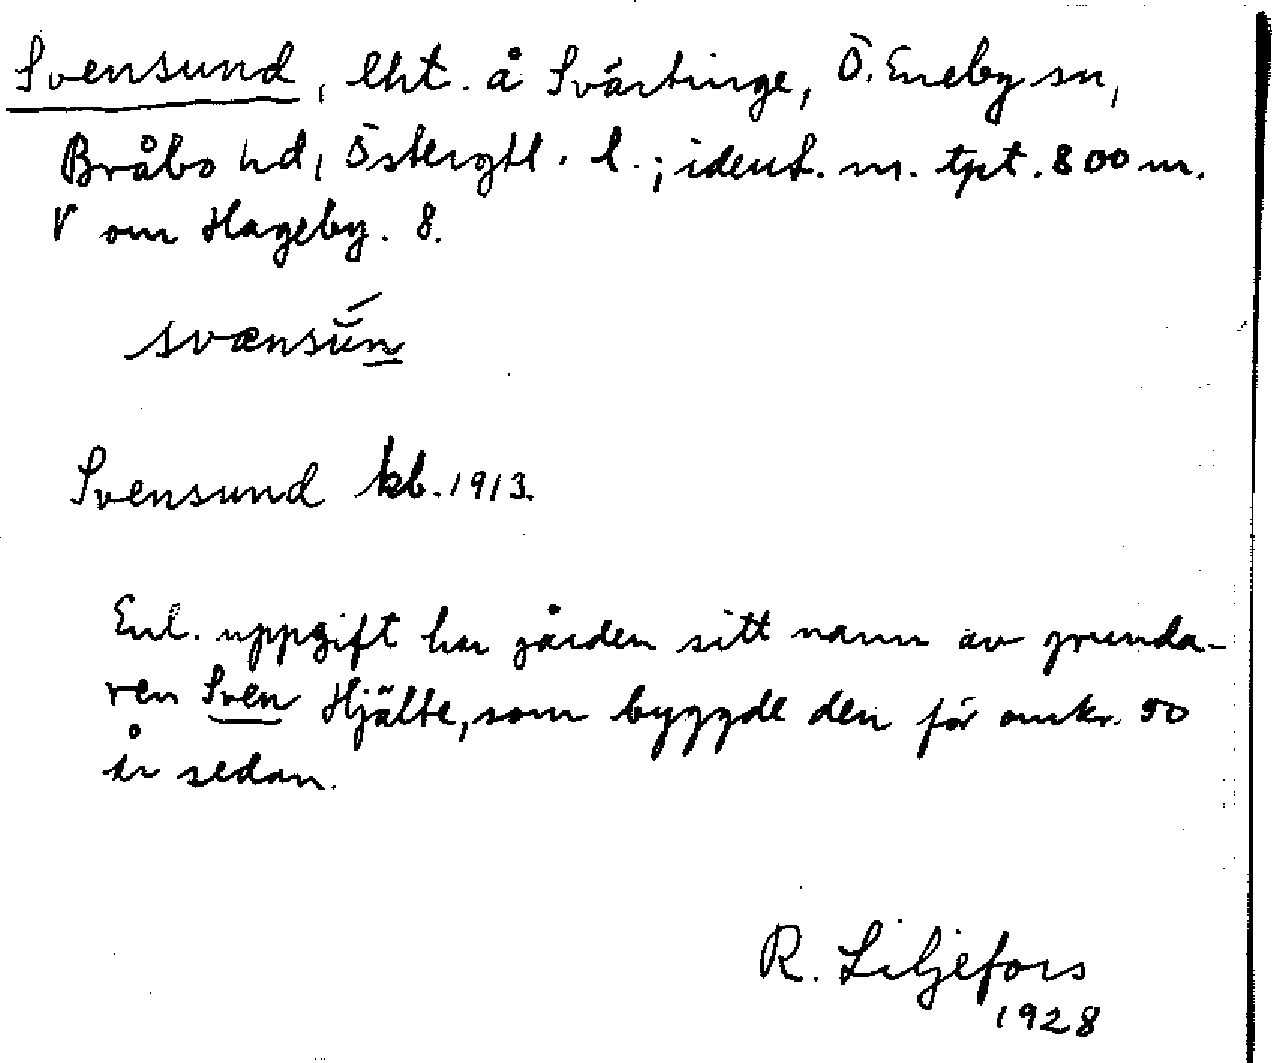 Svensund, lht. å Svärtinge, Ö. Eneby sn,
Bråbo hd, Östergtl. l.; ident. m. tpt. 800 m.
V om Hageby. 8.
svænsún
Svensund kb. 1913.
Enl. uppgift har gården sitt namn av grunda-
ren Sven Hjälte, som byggde den för omkr. 50
år sedan.
R. Liljefors
1928